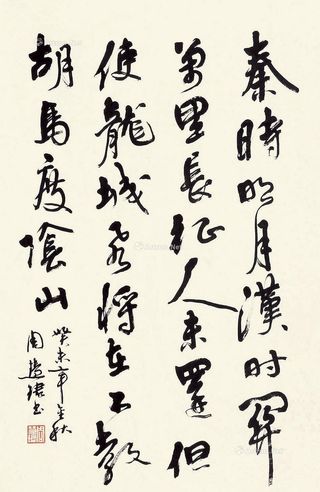 秦時明月漢时關
萬里長征人未還但
使龍城飛將在不教
胡馬度陰山
癸未年金秋
周慧珺书